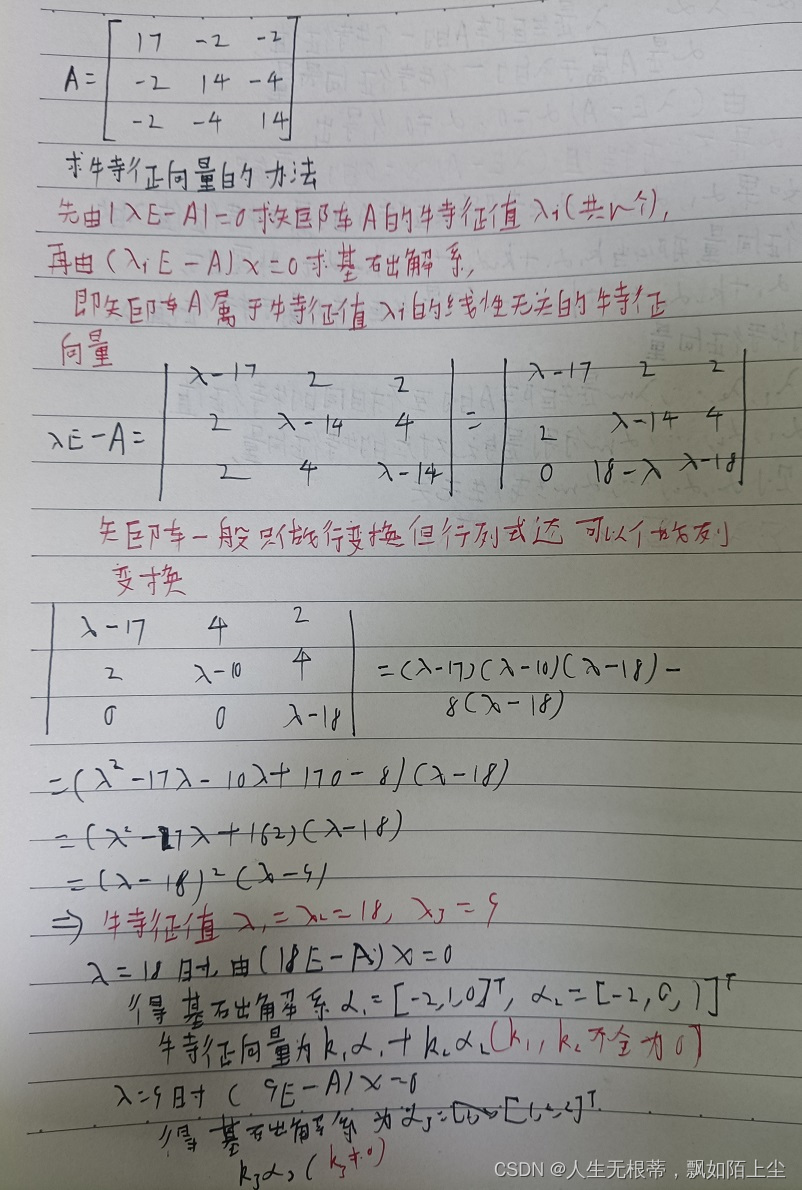 A= [ 17 -2 -2
-2 14 -4
-2 -4 14 ]
求特征向量的办法
先由|λE-A|=0求矩阵A的特征值λi(共n个),
再由(λiE-A)x=0求基础解系,
即矩阵A属于特征值λi的线性无关的特征
向量
λE-A= | λ-17 2 2 | = | λ-17 2 2 |
| 2 λ-14 4 | | 2 λ-14 4 |
| 2 4 λ-14 | | 0 18-λ λ-18 |
矩阵一般只做行变换但行列式还可以做列
变换
| λ-17 4 2 |
| 2 λ-10 4 | =(λ-17)(λ-10)(λ-18)-
| 0 0 λ-18 | 8(λ-18)
=(λ²-17λ-10λ+170-8)(λ-18)
=(λ²-27λ+162)(λ-18)
=(λ-18)²(λ-9)
⇒ 特征值λ₁=λ₂=18, λ₃=9
λ=18时,由(18E-A)x=0
得基础解系α₁=[-2,1,0]ᵀ, α₂=[-2,0,1]ᵀ
特征向量为k₁α₁+k₂α₂(k₁,k₂不全为0)
λ=9时(9E-A)x=0
得基础解系为α₃=[1,2,2]ᵀ
k₃α₃(k₃≠0)
CSDN @人生无根蒂，飘如陌上尘